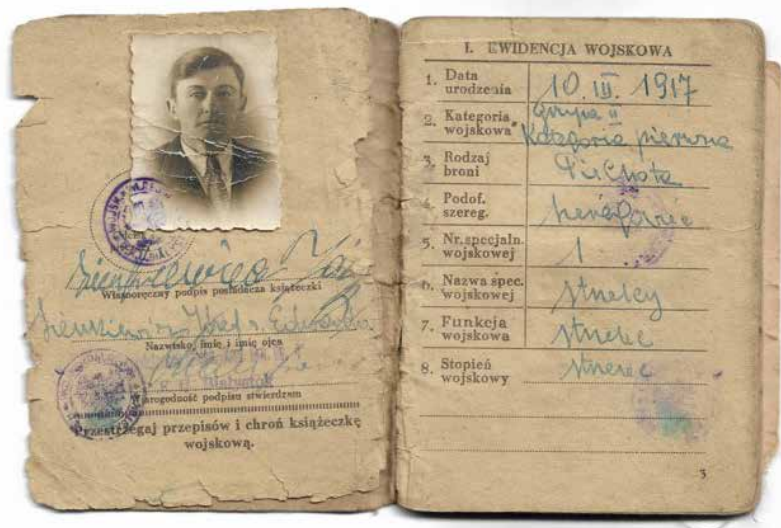 Własnoręczny podpis posiadacza książeczki
Sienkiewicz Józef s. Edwarda
Nazwisko, imię i imię ojca
Białystok
Wiarogodność podpisu stwierdzam
Przestrzegaj przepisów i chroń książeczkę
wojskową.
I. EWIDENCJA WOJSKOWA
1. Data urodzenia 10. III. 1917
2. Kategoria wojskowa grupa II
Kategoria pierwsza
3. Rodzaj broni Piechota
4. Podof. szereg. szeregowiec
5. Nr. specjaln. wojskowej 1
6. Nazwa spec. wojskowej strzelcy
7. Funkcja wojskowa strzelec
8. Stopień wojskowy strzelec
3